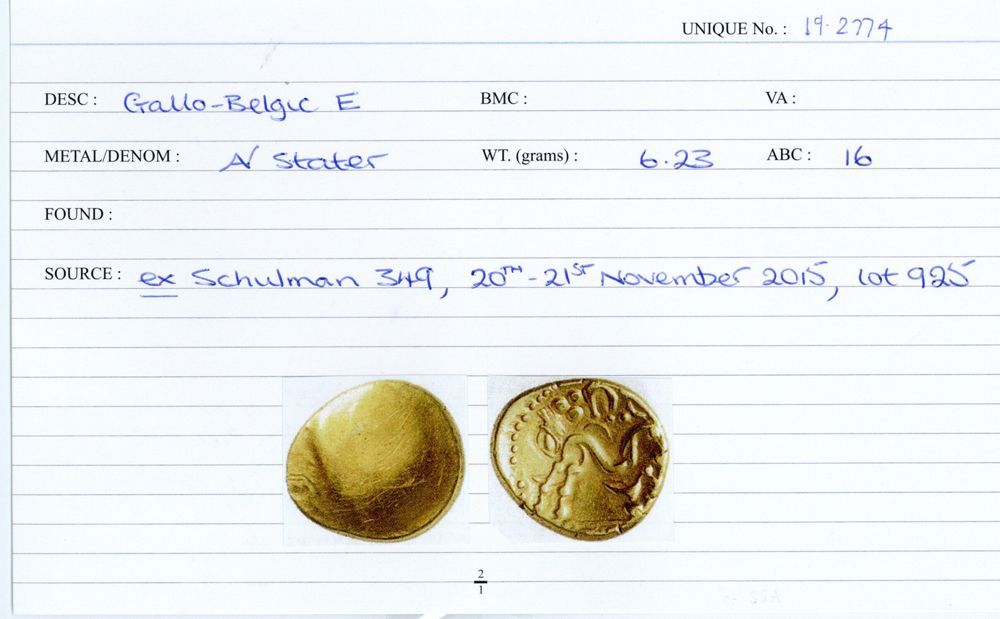 UNIQUE No. : 19.2774
DESC : Gallo-Belgic E BMC : VA :
METAL/DENOM : A/ Stater WT. (grams) : 6.23 ABC : 16
FOUND :
SOURCE : ex Schulman 349, 20TH-21ST November 2015, lot 925
2
1